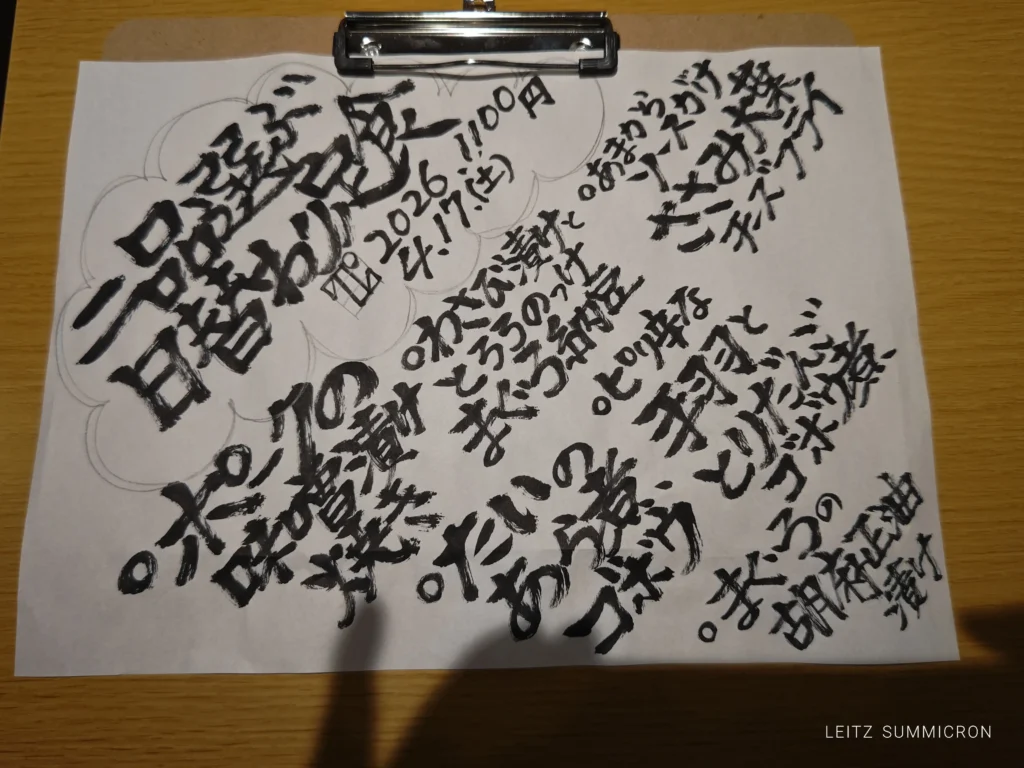 二品選ぶ
日替わり定食
1100円
2026
4.17.(土)
あまから
ソースがけ
ささみ大葉
チーズフライ
わさび漬けと
とろろのっけ
まぐろ納豆
ピリ辛な
手羽と
とりだんご
ゴボウ煮
ポークの
味噌漬け
焼き
たいの
あら煮
ゴボウ
まぐろの
胡麻正油
漬け
LEITZ SUMMICRON